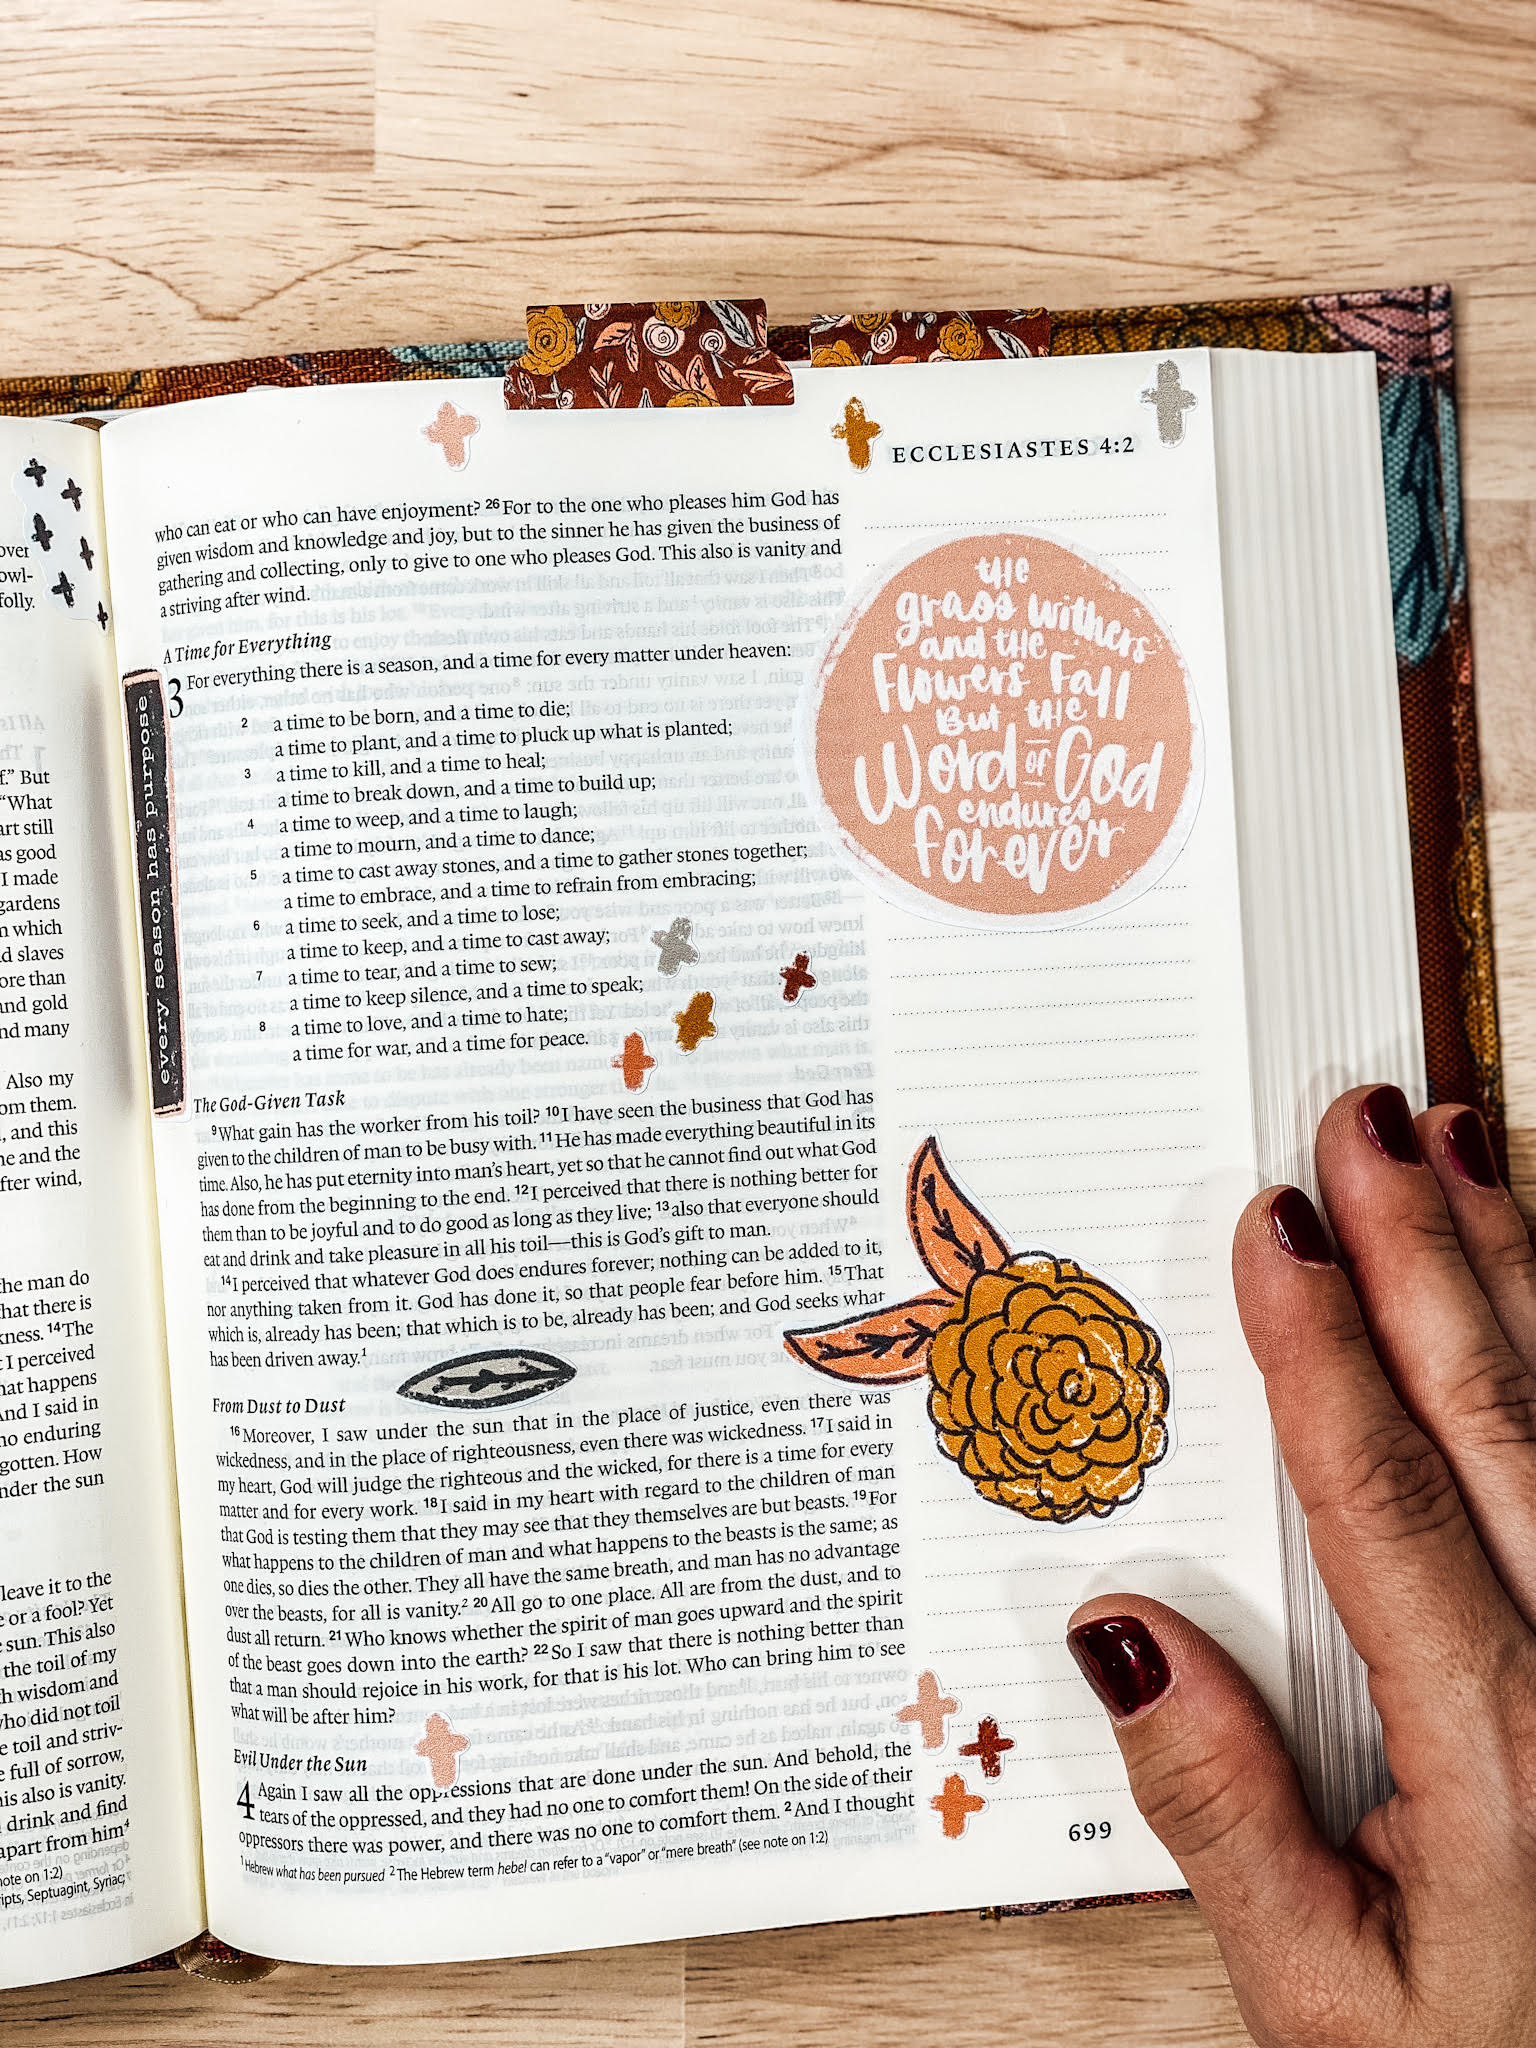 over
owl-
folly.
f.” But
“What
art still
as good
I made
gardens
n which
d slaves
ore than
and gold
nd many
. Also my
om them.
, and this
ne and the
fter wind,
he man do
hat there is
kness. 14 The
t I perceived
hat happens
And I said in
no enduring
gotten. How
nder the sun
leave it to the
e or a fool? Yet
e sun. This also
the toil of my
h wisdom and
who did not toil
e toil and striv-
e full of sorrow,
his also is vanity.
drink and find
apart from him4
note on 1:2)
ripts, Septuagint, Syriac;
every season has purpose
ECCLESIASTES 4:2
who can eat or who can have enjoyment? 26 For to the one who pleases him God has
given wisdom and knowledge and joy, but to the sinner he has given the business of
gathering and collecting, only to give to one who pleases God. This also is vanity and
a striving after wind.
A Time for Everything
3 For everything there is a season, and a time for every matter under heaven:
2 a time to be born, and a time to die;
a time to plant, and a time to pluck up what is planted;
3 a time to kill, and a time to heal;
a time to break down, and a time to build up;
4 a time to weep, and a time to laugh;
a time to mourn, and a time to dance;
5 a time to cast away stones, and a time to gather stones together;
a time to embrace, and a time to refrain from embracing;
6 a time to seek, and a time to lose;
a time to keep, and a time to cast away;
7 a time to tear, and a time to sew;
a time to keep silence, and a time to speak;
8 a time to love, and a time to hate;
a time for war, and a time for peace.
The God-Given Task
9 What gain has the worker from his toil? 10 I have seen the business that God has
given to the children of man to be busy with. 11 He has made everything beautiful in its
time. Also, he has put eternity into man’s heart, yet so that he cannot find out what God
has done from the beginning to the end. 12 I perceived that there is nothing better for
them than to be joyful and to do good as long as they live; 13 also that everyone should
eat and drink and take pleasure in all his toil—this is God’s gift to man.
14 I perceived that whatever God does endures forever; nothing can be added to it,
nor anything taken from it. God has done it, so that people fear before him. 15 That
which is, already has been; that which is to be, already has been; and God seeks what
has been driven away.1
From Dust to Dust
16 Moreover, I saw under the sun that in the place of justice, even there was
wickedness, and in the place of righteousness, even there was wickedness. 17 I said in
my heart, God will judge the righteous and the wicked, for there is a time for every
matter and for every work. 18 I said in my heart with regard to the children of man
that God is testing them that they may see that they themselves are but beasts. 19 For
what happens to the children of man and what happens to the beasts is the same; as
one dies, so dies the other. They all have the same breath, and man has no advantage
over the beasts, for all is vanity.2 20 All go to one place. All are from the dust, and to
dust all return. 21 Who knows whether the spirit of man goes upward and the spirit
of the beast goes down into the earth? 22 So I saw that there is nothing better than
that a man should rejoice in his work, for that is his lot. Who can bring him to see
what will be after him?
Evil Under the Sun
4 Again I saw all the oppressions that are done under the sun. And behold, the
tears of the oppressed, and they had no one to comfort them! On the side of their
oppressors there was power, and there was no one to comfort them. 2 And I thought
1 Hebrew what has been pursued 2 The Hebrew term hebel can refer to a “vapor” or “mere breath” (see note on 1:2)
the
grass withers
and the
Flowers Fall
But the
Word of God
endures
forever
699